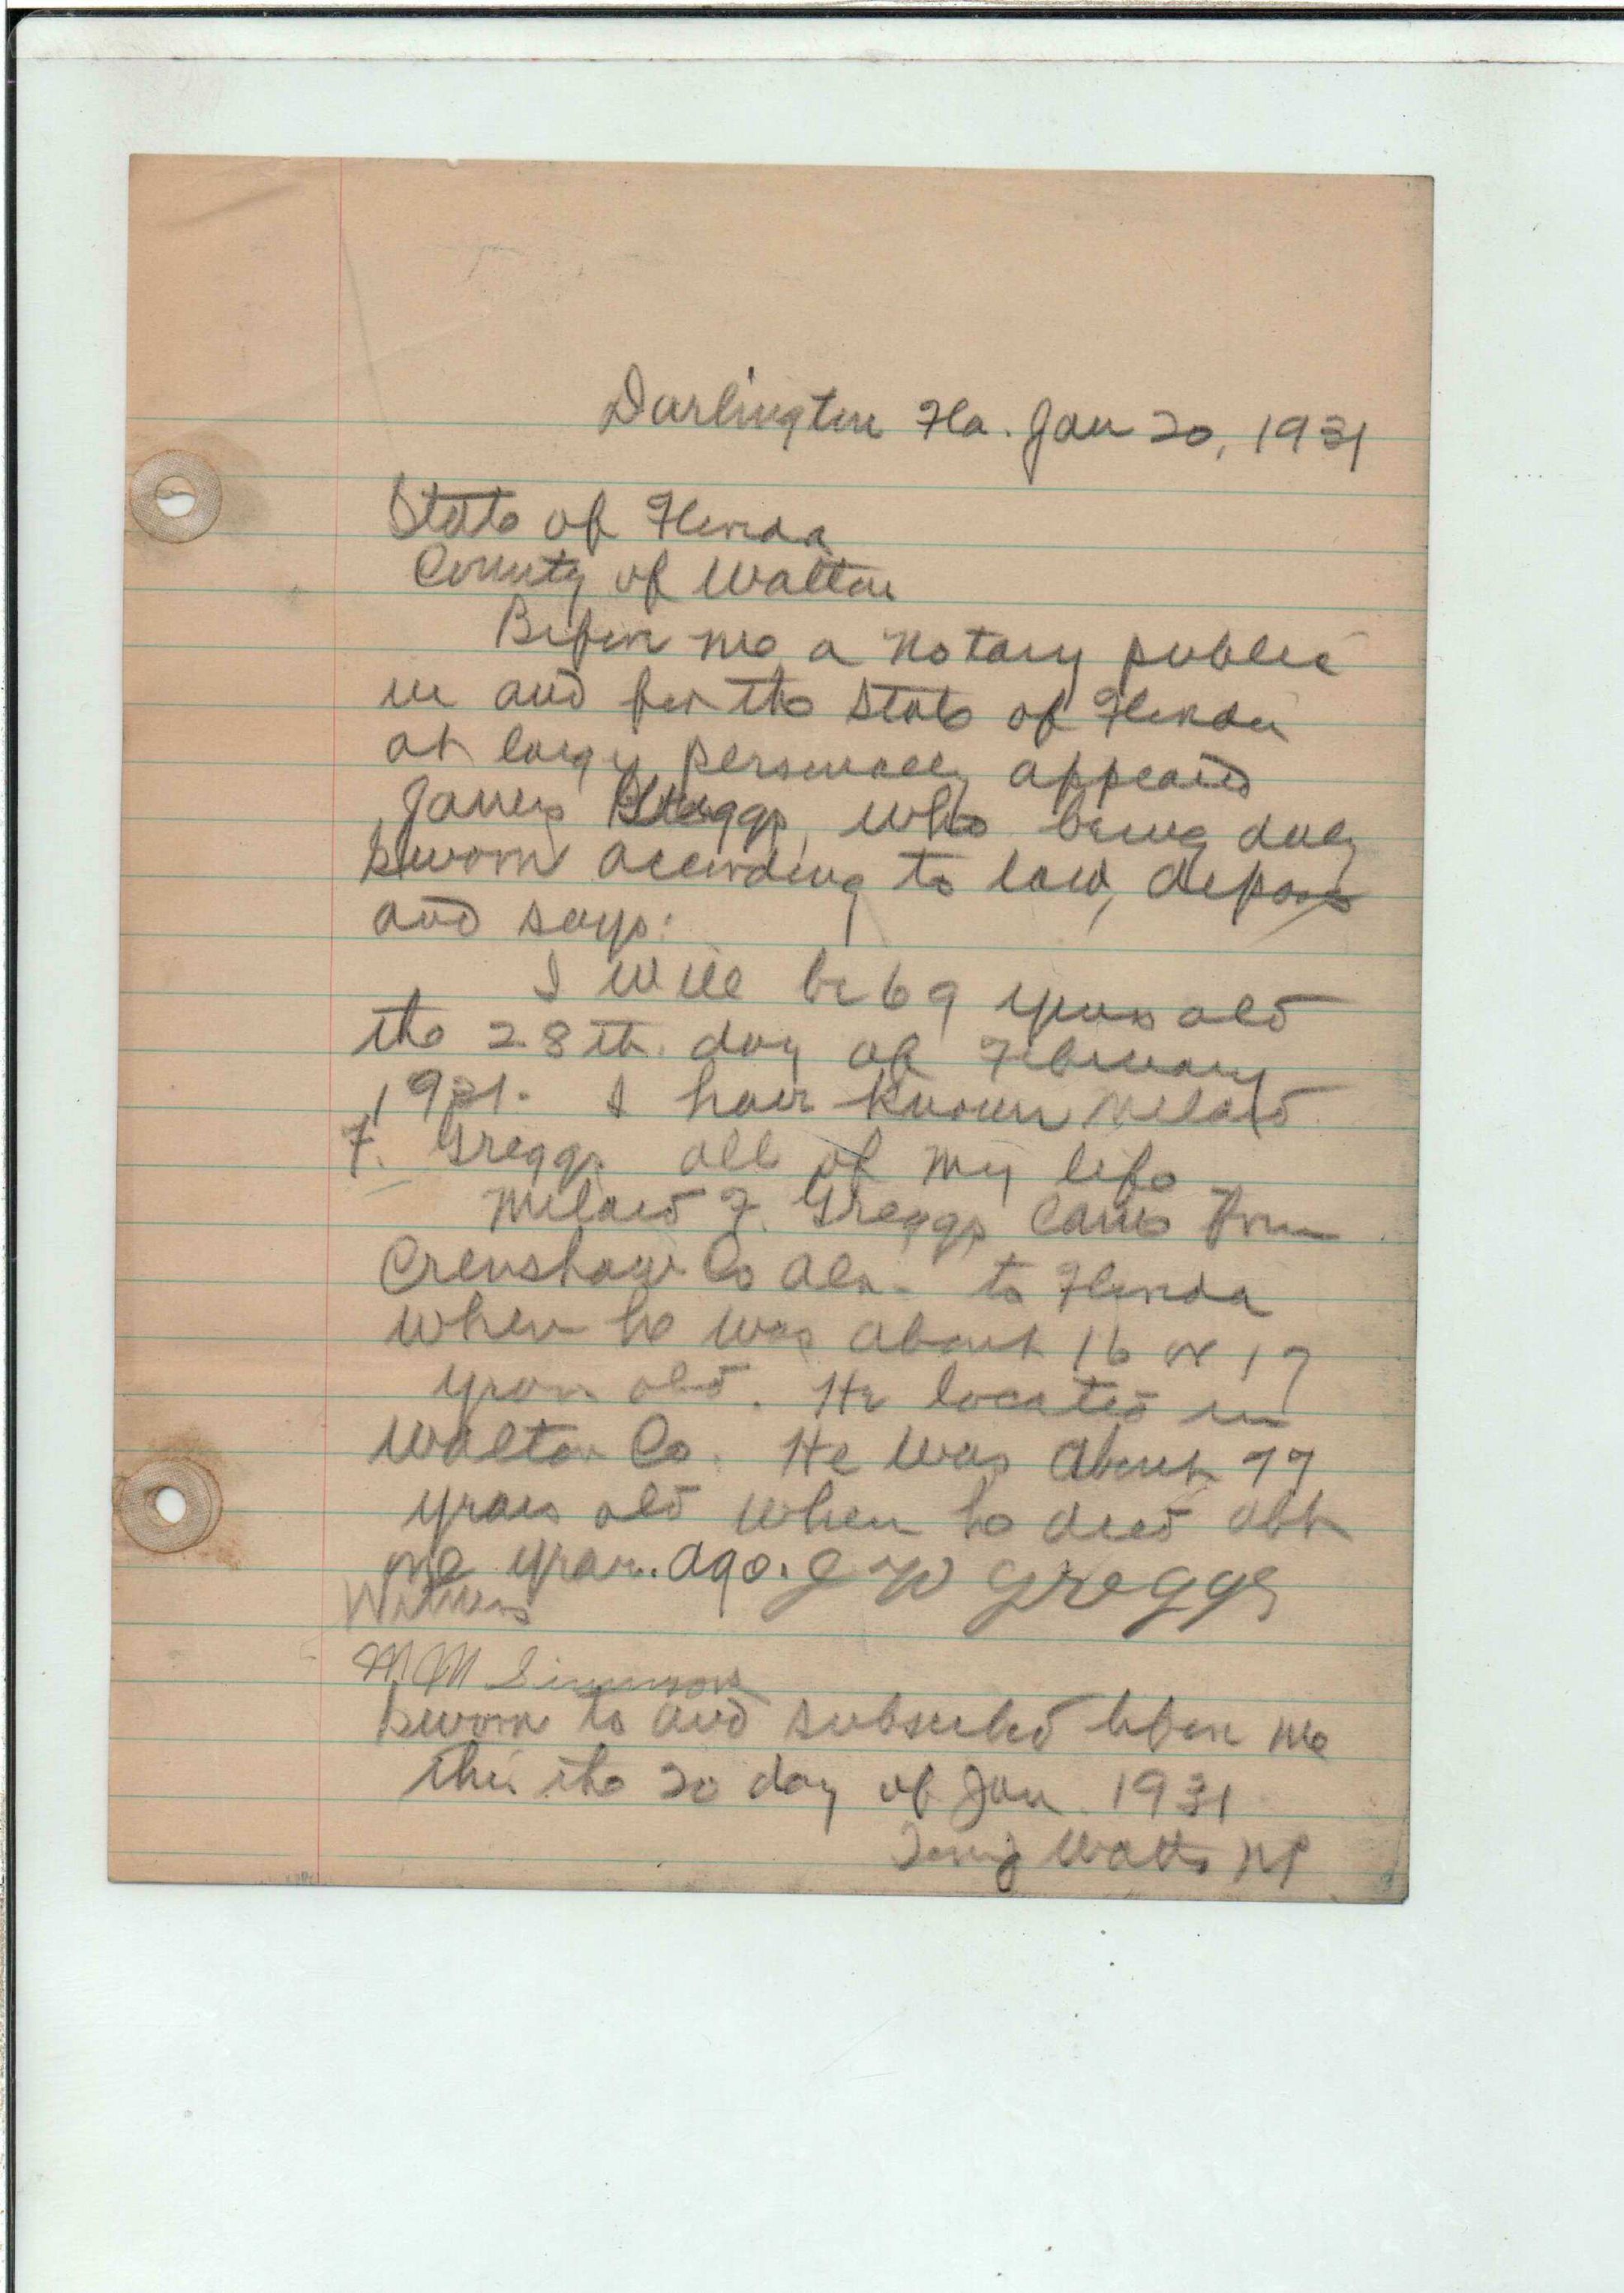 Darlington Fla. Jan 20, 1931
State of Florida
County of Walton
Before me a Notary public
in and for the State of Florida
at large personally appeared
James Greggs, who being duly
sworn according to law, deposes
and says:
I will be 69 years old
the 28th. day of February
1931. I have known Milard
F. Greggs all of my life
Milard F. Greggs came from
Crenshaw Co Ala. to Florida
when he was about 16 or 17
years old. He located in
Walton Co. He was about 77
years old when he died abt
one year. ago. J W Greggs
Witness
M M Simmons
Sworn to and subscribed before me
this the 20 day of Jan 1931
Watts NP